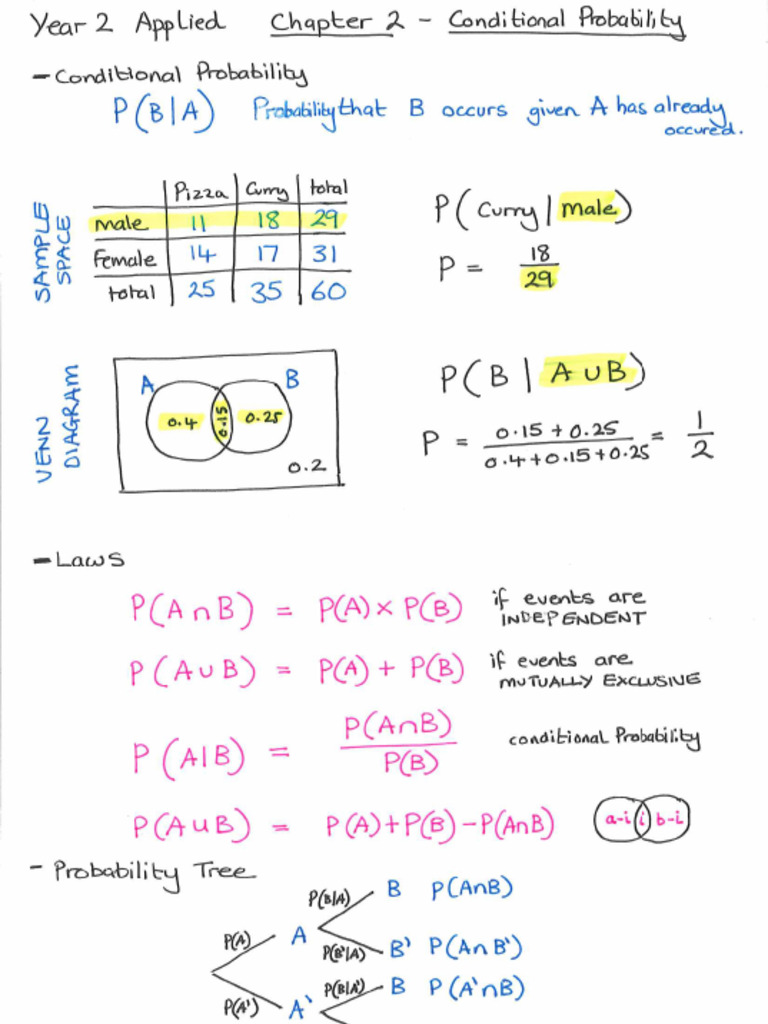 Year 2 Applied Chapter 2 - Conditional Probability
- Conditional Probability
P(B|A) Probability that B occurs given A has already
occured.
SAMPLE SPACE
Pizza Curry total
male 11 18 29
female 14 17 31
total 25 35 60
P(Curry|male)
P = 18/29
VENN DIAGRAM
A B
0.4 0.15 0.25
0.2
P(B|A∪B)
P = (0.15+0.25)/(0.4+0.15+0.25) = 1/2
- Laws
P(A∩B) = P(A)×P(B) if events are
INDEPENDENT
P(A∪B) = P(A)+P(B) if events are
MUTUALLY EXCLUSIVE
P(A|B) = P(A∩B)/P(B) conditional Probability
P(A∪B) = P(A)+P(B)-P(A∩B) a-i i b-i
- Probability Tree
P(B|A) B P(A∩B)
P(A) A
P(B'|A) B' P(A∩B')
P(B|A') B P(A'∩B)
P(A') A'